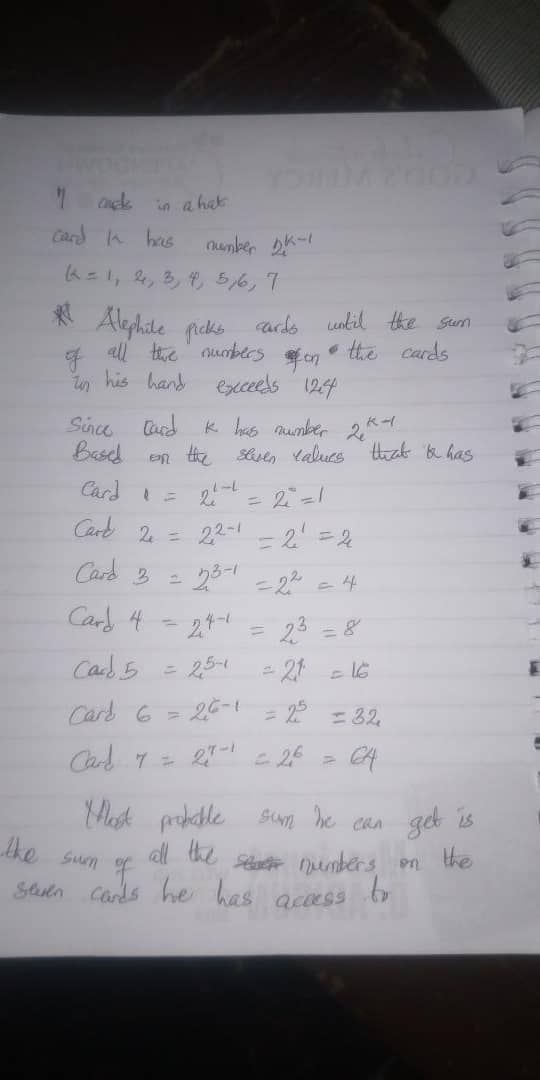 7 cards in a hat
card k has number 2^k-1
k = 1, 2, 3, 4, 5, 6, 7
Alephile picks cards until the sum
of all the numbers on the cards
in his hand exceeds 124
Since Card k has number 2^k-1
Based on the seven values that k has
Card 1 = 2^1-1 = 2^0 = 1
Card 2 = 2^2-1 = 2^1 = 2
Card 3 = 2^3-1 = 2^2 = 4
Card 4 = 2^4-1 = 2^3 = 8
Card 5 = 2^5-1 = 2^4 = 16
Card 6 = 2^6-1 = 2^5 = 32
Card 7 = 2^7-1 = 2^6 = 64
Most probable sum he can get is
the sum of all the numbers on the
seven cards he has access to